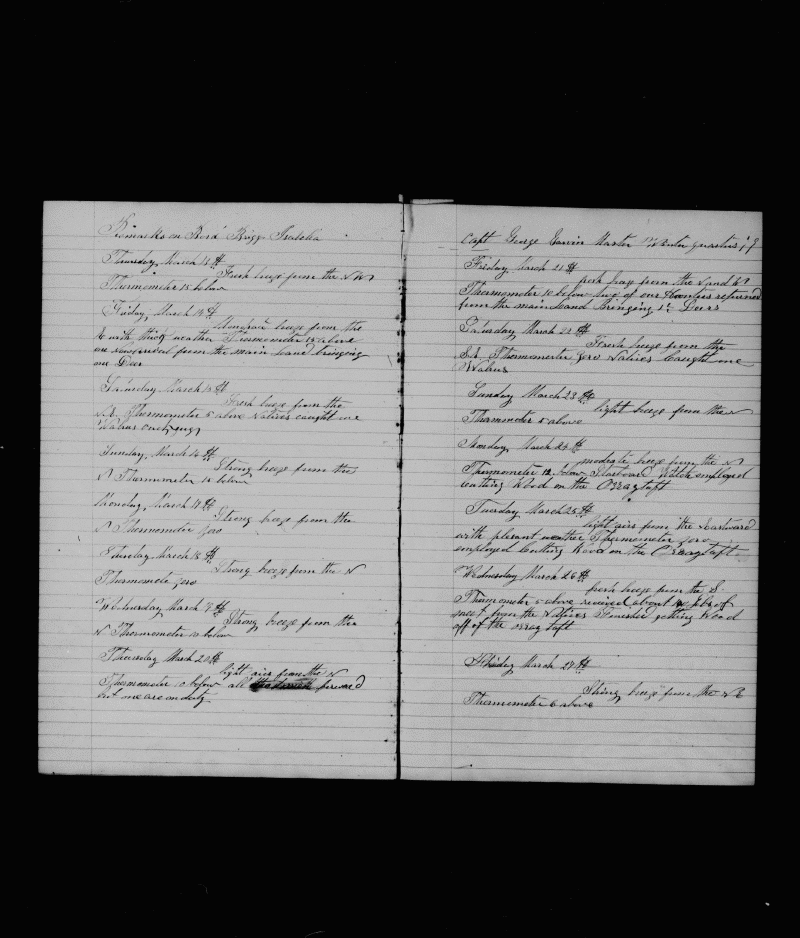 Remarks on Bord Brigg Isabella
Thursday March 13th
Fresh breeze from the NW
Thermometer 15 below
Friday, March 14th
breeze from the
with thick weather Thermometer above
one from the main Land bringing
one Deer
Saturday March 15th
Fresh breeze from the
N.E. Thermometer 5 above Natives caught one
Walrus
Sunday, March
Strong breeze from the
N Thermometer below
Monday, March 17th
Strong breeze from the
N Thermometer zero
March 18th
Strong breeze from the N
Thermomete zero
Wednesday March
Strong breeze from the
N Thermometer below
Thursday March 20th
light airs from the N
Thermometer below all forward
but one are on duty
Capt George Master Winter quarters
Friday March 21th
fresh breeze from the N and W
Thermometer 10 below two of our Hunters returned
from the main Land bringing Deers
Saturday March 22th
Fresh breeze from the
Thermometer zero Natives Caught one
Walrus
Sunday March 23th
light breeze from the N
Thermometer 5 above
Monday, March 24th
moderate breeze from the N
Thermometer 12 below Starboard Watch employed
cutting Wood on the
Tuesday March 25th
light airs from the Eastward
with plesant weather Thermometer zero
employed Cutting Wood on the
Wednesday March 26th
fresh breeze from the S.
Thermometer 5 above received about lbs of
meet from the Natives Finished getting Wood
off of the
March 27th
Strong breeze from the NE
Thermometer 6 above